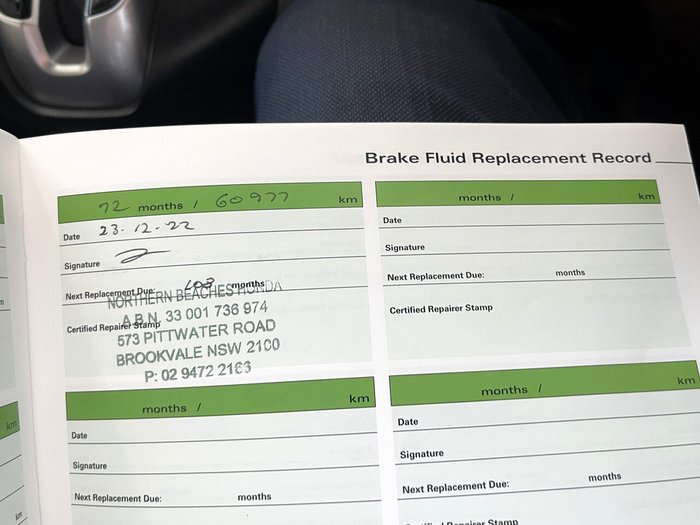 Brake Fluid Replacement Record
72 months / 60977 km
Date 23.12.22
Signature
Next Replacement Due: 108 months
Certified Repairer Stamp
NORTHERN BEACHES HONDA
A.B.N. 33 001 736 974
573 PITTWATER ROAD
BROOKVALE NSW 2100
P: 02 9472 2163
months / km
Date
Signature
Next Replacement Due: months
Certified Repairer Stamp
months / km
Date
Signature
Next Replacement Due: months
months / km
Date
Signature
Next Replacement Due: months
Certified Repairer Stamp
km
km